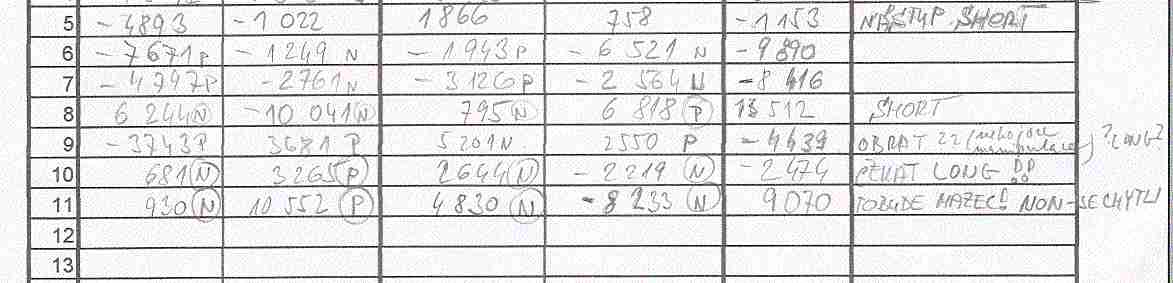 5 -4893 -1 022 1866 758 -1 153 NÁSTUP SHORT
6 -7671 P -1249 N -1943 P -6 521 N -9 890
7 -4797 P -2761 N -3126 P -2 564 N -8 416
8 6 244 N -10 041 N 795 N 6 818 P 13 512 SHORT
9 -3743 P 3681 P 5201 N. 2550 P -4439 OBRAT 22 ?LONG?
10 681 N 3265 P 2644 N -2219 N -2474 ČEKAT LONG !!
11 930 N 10 552 P 4 830 N -8 233 N 9 070 TO BUDE MAZEC! NON-SE CHYTLI
12
13